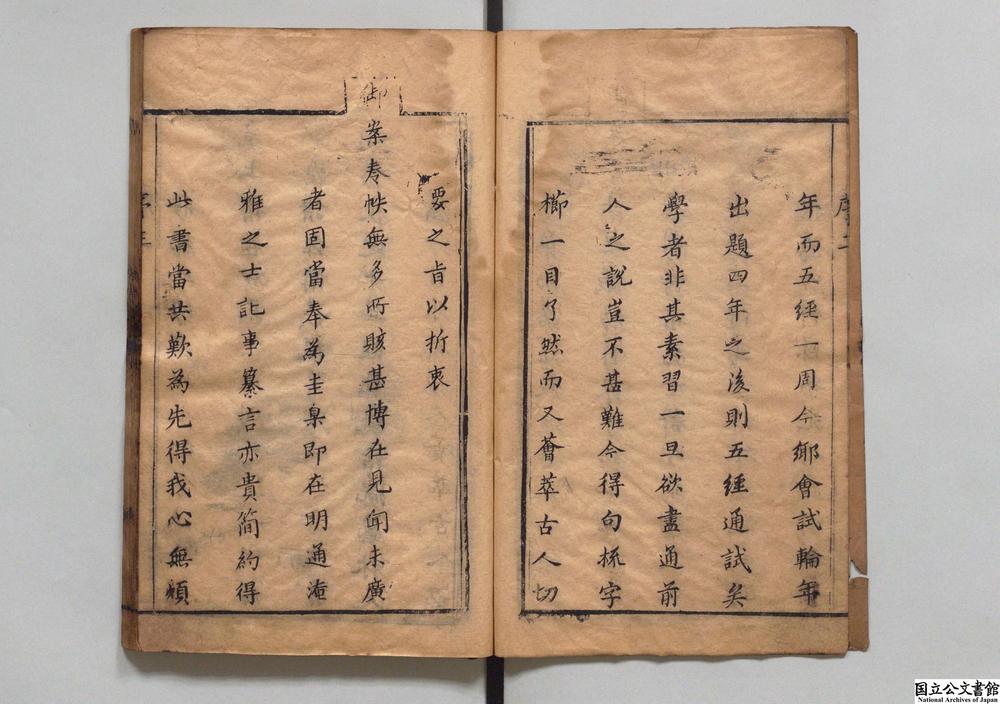 序二
年而五經一周今鄉會試輪年
出題四年之後則五經通試矣
學者非其素習一旦欲盡通前
人之說豈不甚難今得句梳字
櫛一目了然而又薈萃古人切
要之旨以折衷
御
案卷帙無多所賅甚博在見聞未廣
者固當奉為圭臬即在明通淹
雅之士記事纂言亦貴簡約得
此書當共歎為先得我心無煩
序三
国立公文書館
National Archives of Japan